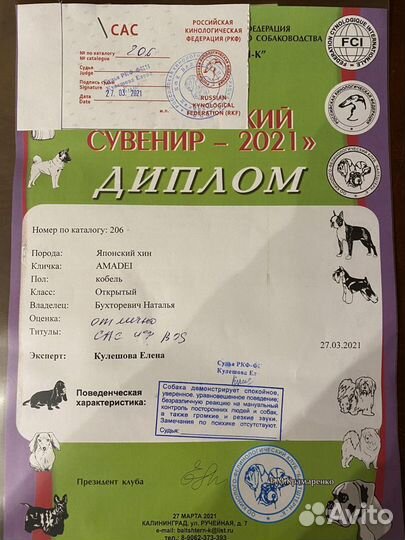 САС
№ по каталогу 206
№ catalogue
Судья
Judge
Судья РКФ-FCI
Кулешова Елена
Подпись судьи
Signature
Дата 27.03.2021
Data
РОССИЙСКАЯ
КИНОЛОГИЧЕСКАЯ
ФЕДЕРАЦИЯ (РКФ)
RUSSIAN
KYNOLOGICAL
FEDERATION (RKF)
FCI
СУВЕНИР – 2021»
ДИПЛОМ
Номер по каталогу: 206
Порода: Японский хин
Кличка: AMADEI
Пол: кобель
Класс: Открытый
Владелец: Бухторевич Наталья
Оценка: отлично
Титулы: CAC ЧФ BOS
27.03.2021
Эксперт: Кулешова Елена
Судья РКФ-FCI
Поведенческая
характеристика:
Собака демонстрирует спокойное,
уверенное, уравновешенное поведение;
безразличную реакцию на мануальный
контроль посторонних людей и собак,
а также громкие и резкие звуки.
Замечания по психике отсутствуют.
Судья:
Президент клуба
27 МАРТА 2021
КАЛИНИНГРАД, УЛ. РУЧЕЙНАЯ, д. 7
e-mail: baltshtern-k@list.ru
тел.: 8-9062-373-393
Avito